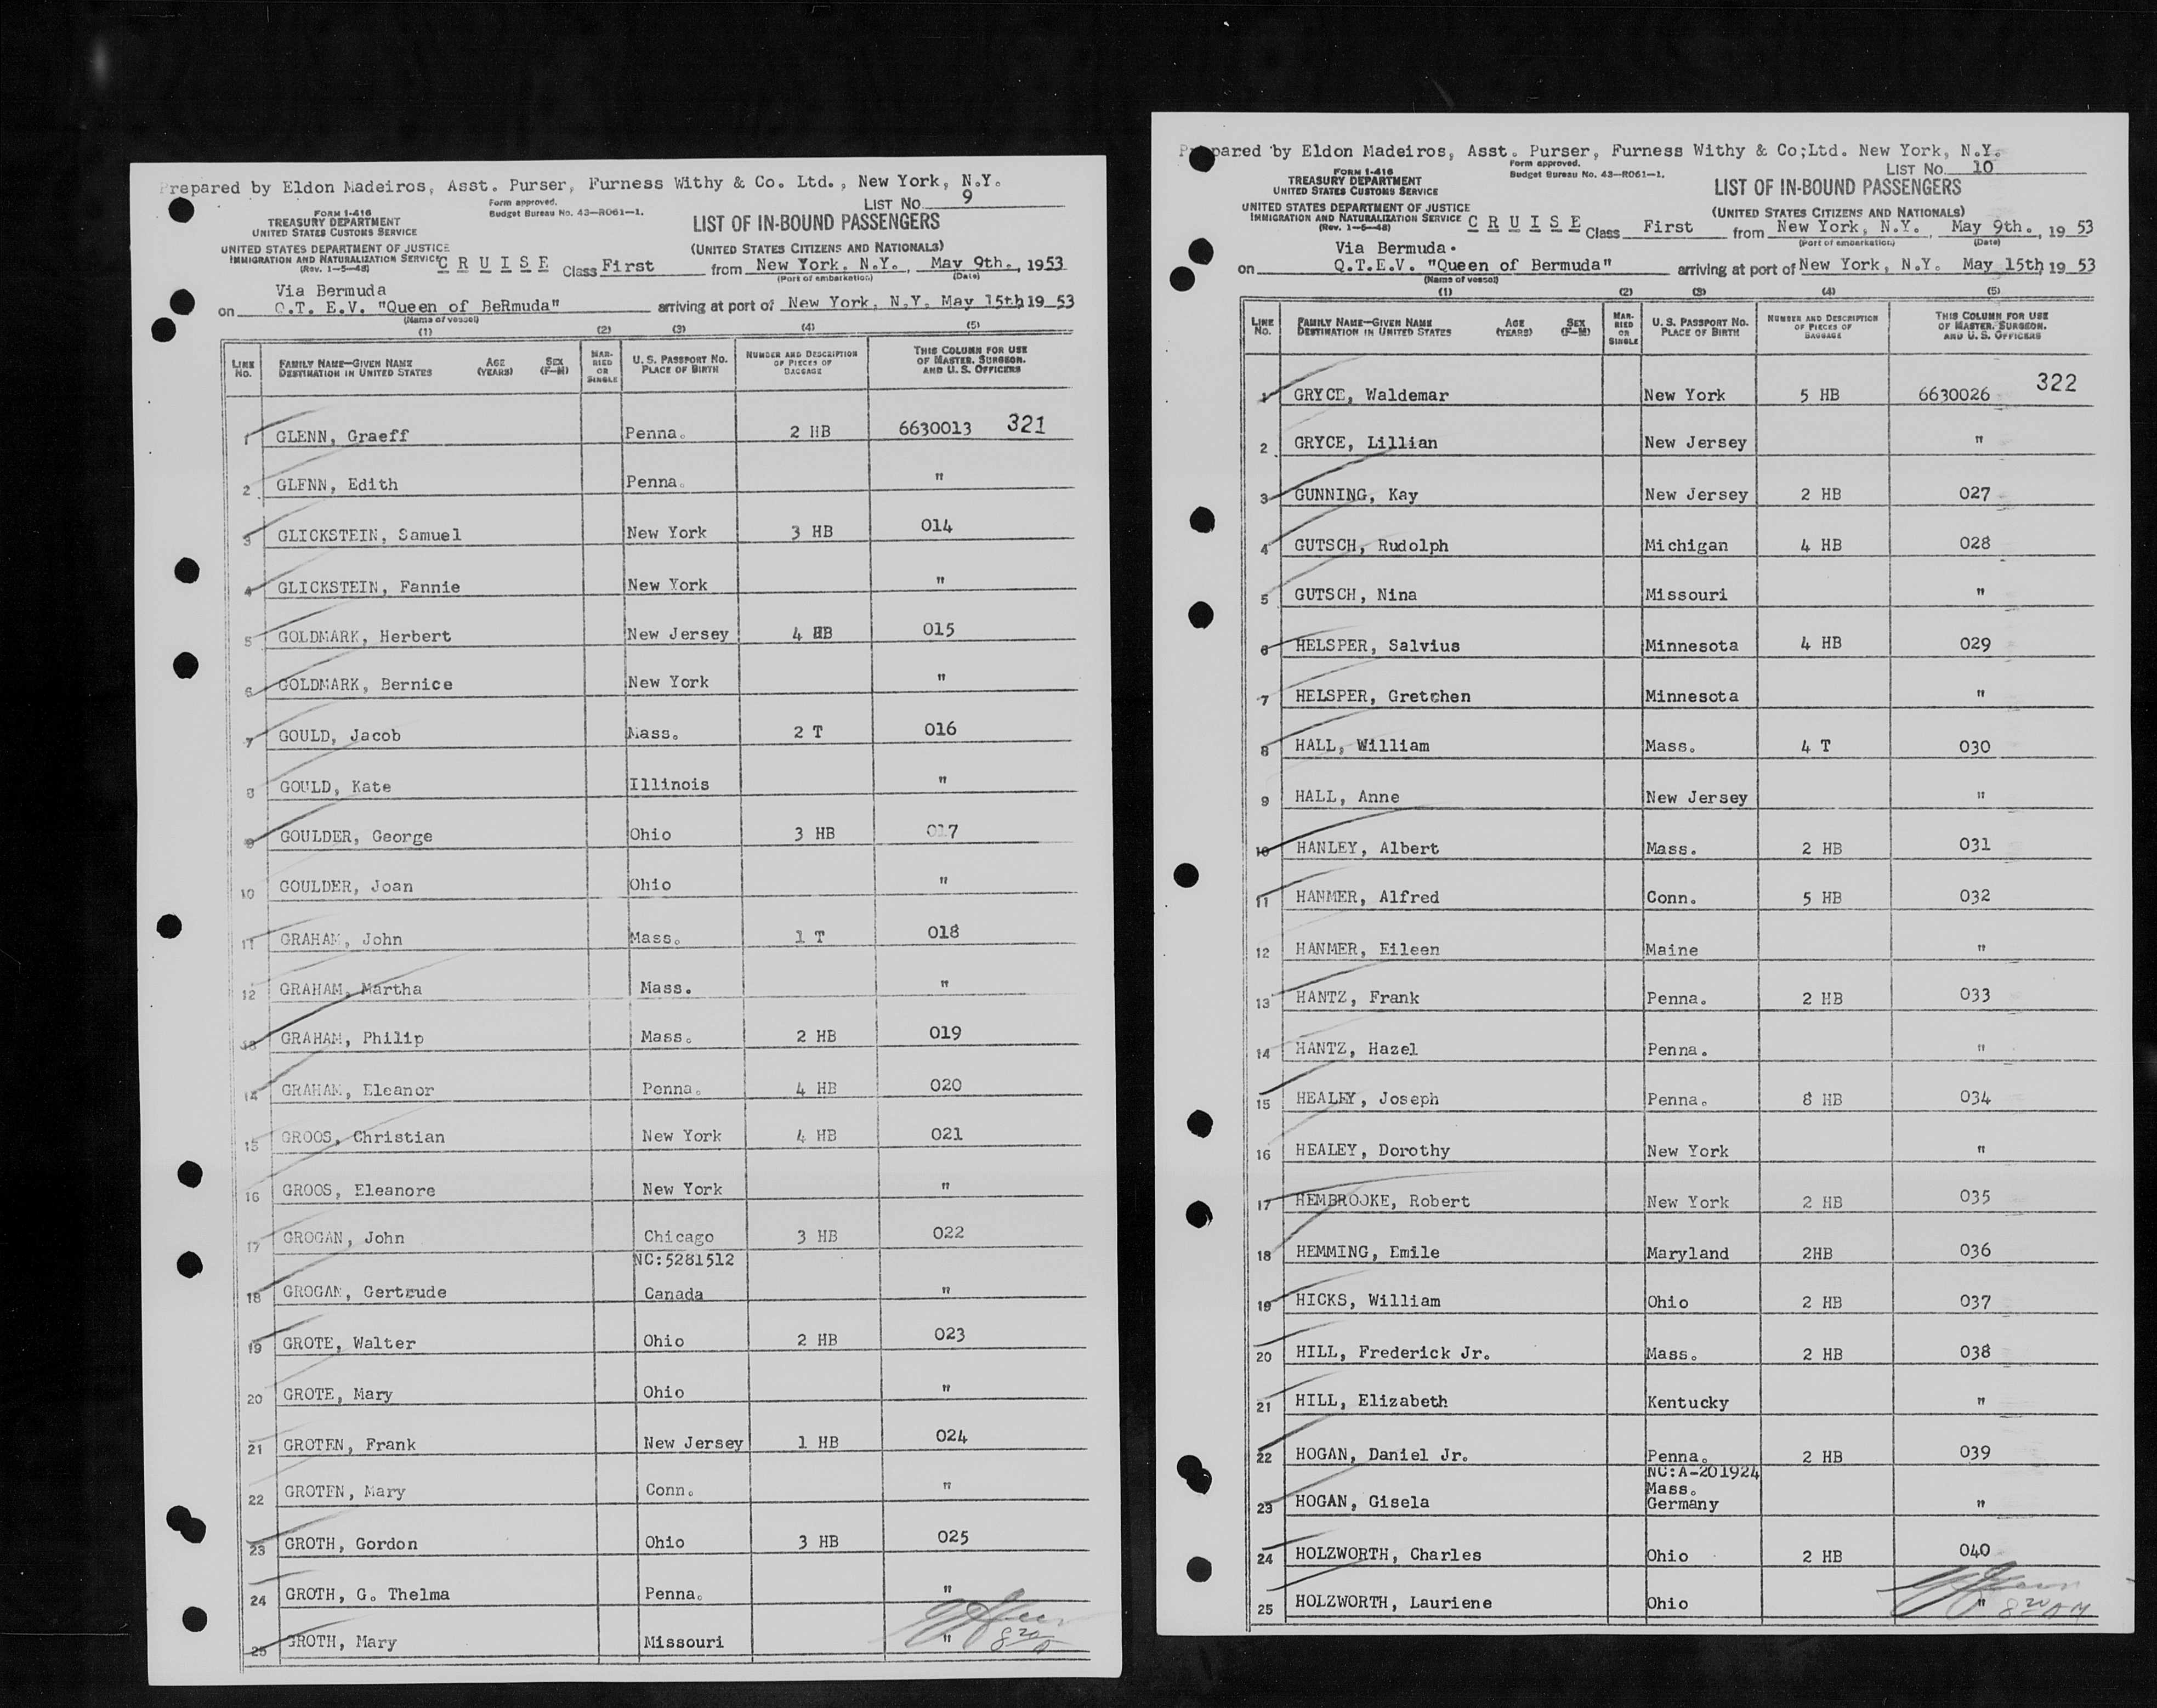 Prepared by Eldon Madeiros, Asst. Purser, Furness Withy & Co. Ltd., New York, N.Y.
Form approved.
Budget Bureau No. 43—R061—1.
LIST No. 9
FORM I-416
TREASURY DEPARTMENT
UNITED STATES CUSTOMS SERVICE
LIST OF IN-BOUND PASSENGERS
(UNITED STATES CITIZENS AND NATIONALS)
UNITED STATES DEPARTMENT OF JUSTICE
IMMIGRATION AND NATURALIZATION SERVICE
(Rev. 1—5—48)
C R U I S E Class First from New York, N.Y., May 9th., 1953
(Port of embarkation) (Date)
Via Bermuda
on Q.T. E.V. "Queen of BeRmuda" arriving at port of New York, N.Y. May 15th 19 53
(Name of vessel)
(1) (2) (3) (4) (5)
LINE No. FAMILY NAME—GIVEN NAME DESTINATION IN UNITED STATES AGE (YEARS) SEX (F—M) MARRIED OR SINGLE U. S. PASSPORT NO. PLACE OF BIRTH NUMBER AND DESCRIPTION OF PIECES OF BAGGAGE THIS COLUMN FOR USE OF MASTER, SURGEON, AND U. S. OFFICERS
1 GLENN, Graeff Penna. 2 HB 6630013 321
2 GLENN, Edith Penna. "
3 GLICKSTEIN, Samuel New York 3 HB 014
4 GLICKSTEIN, Fannie New York "
5 GOLDMARK, Herbert New Jersey 4 HB 015
6 GOLDMARK, Bernice New York "
7 GOULD, Jacob Mass. 2 T 016
8 GOULD, Kate Illinois "
9 GOULDER, George Ohio 3 HB 017
10 GOULDER, Joan Ohio "
11 GRAHAM, John Mass. 1 T 018
12 GRAHAM, Martha Mass. "
13 GRAHAM, Philip Mass. 2 HB 019
14 GRAHAM, Eleanor Penna. 4 HB 020
15 GROOS, Christian New York 4 HB 021
16 GROOS, Eleanore New York "
17 GROGAN, John Chicago 3 HB 022
NC:5281512
18 GROGAN, Gertrude Canada "
19 GROTE, Walter Ohio 2 HB 023
20 GROTE, Mary Ohio "
21 GROTEN, Frank New Jersey 1 HB 024
22 GROTEN, Mary Conn. "
23 GROTH, Gordon Ohio 3 HB 025
24 GROTH, G. Thelma Penna. "
25 GROTH, Mary Missouri "
Prepared by Eldon Madeiros, Asst. Purser, Furness Withy & Co;Ltd. New York, N.Y.
Form approved.
Budget Bureau No. 43—R061—1.
LIST No. 10
FORM I-416
TREASURY DEPARTMENT
UNITED STATES CUSTOMS SERVICE
LIST OF IN-BOUND PASSENGERS
(UNITED STATES CITIZENS AND NATIONALS)
UNITED STATES DEPARTMENT OF JUSTICE
IMMIGRATION AND NATURALIZATION SERVICE
(Rev. 1—5—48)
C R U I S E Class First from New York, N.Y., May 9th., 19 53
(Port of embarkation) (Date)
Via Bermuda.
on Q.T.E.V. "Queen of Bermuda" arriving at port of New York, N.Y. May 15th 19 53
(Name of vessel)
(1) (2) (3) (4) (5)
LINE No. FAMILY NAME—GIVEN NAME DESTINATION IN UNITED STATES AGE (YEARS) SEX (F—M) MARRIED OR SINGLE U. S. PASSPORT NO. PLACE OF BIRTH NUMBER AND DESCRIPTION OF PIECES OF BAGGAGE THIS COLUMN FOR USE OF MASTER, SURGEON, AND U. S. OFFICERS
1 GRYCE, Waldemar New York 5 HB 6630026 322
2 GRYCE, Lillian New Jersey "
3 GUNNING, Kay New Jersey 2 HB 027
4 GUTSCH, Rudolph Michigan 4 HB 028
5 GUTSCH, Nina Missouri "
6 HELSPER, Salvius Minnesota 4 HB 029
7 HELSPER, Gretchen Minnesota "
8 HALL, William Mass. 4 T 030
9 HALL, Anne New Jersey "
10 HANLEY, Albert Mass. 2 HB 031
11 HANMER, Alfred Conn. 5 HB 032
12 HANMER, Eileen Maine "
13 HANTZ, Frank Penna. 2 HB 033
14 HANTZ, Hazel Penna. "
15 HEALEY, Joseph Penna. 8 HB 034
16 HEALEY, Dorothy New York "
17 HEMBROOKE, Robert New York 2 HB 035
18 HEMMING, Emile Maryland 2HB 036
19 HICKS, William Ohio 2 HB 037
20 HILL, Frederick Jr. Mass. 2 HB 038
21 HILL, Elizabeth Kentucky "
22 HOGAN, Daniel Jr. Penna. 2 HB 039
NC:A-201924
Mass.
23 HOGAN, Gisela Germany "
24 HOLZWORTH, Charles Ohio 2 HB 040
25 HOLZWORTH, Lauriene Ohio "